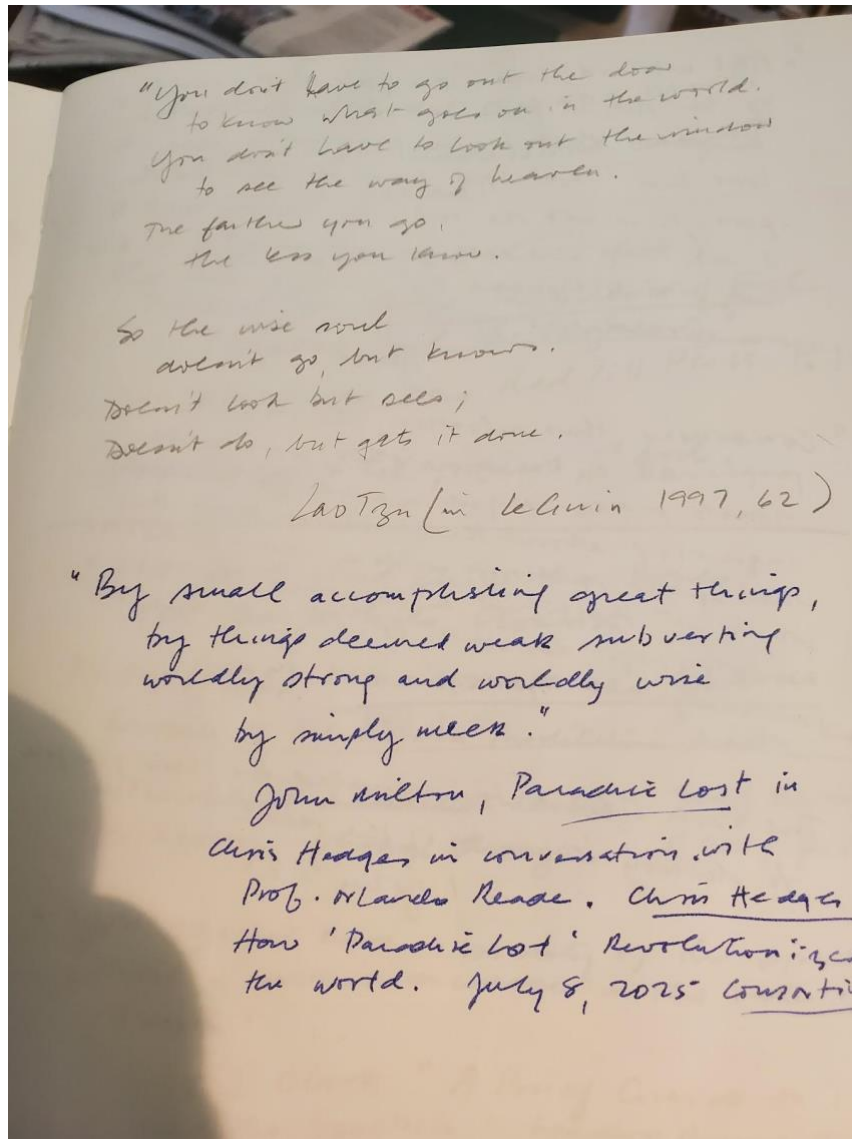 "You don't have to go out the door
to know what goes on in the world.
You don't have to look out the window
to see the way of heaven.
The farther you go,
the less you know.
So the wise soul
doesn't go, but knows.
Doesn't look but sees;
Doesn't do, but gets it done.
Lao Tzu (in LeGuin 1997, 62)
"By small accomplishing great things,
by things deemed weak subverting
worldly strong and worldly wise
by simply meek."
John Milton, Paradise Lost in
Chris Hedges in conversation with
Prof. Orlando Reade. Chris Hedges
How 'Paradise Lost' Revolutionize
the world. July 8, 2025 Consorti